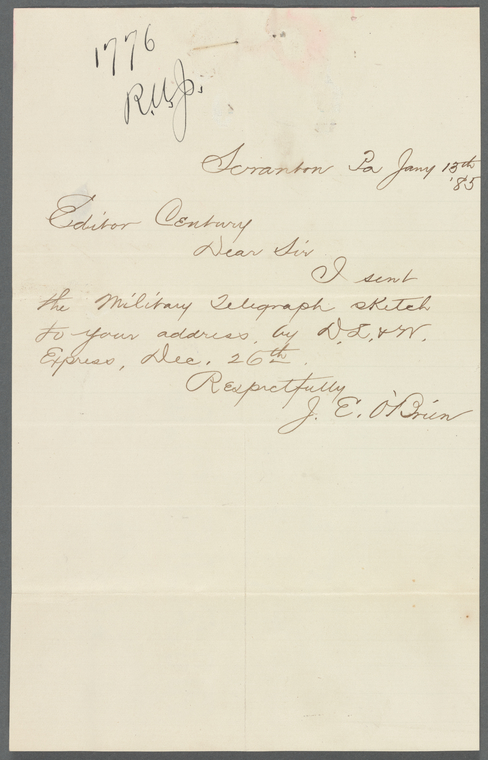 1776
R.U.J.
Scranton Pa Jany 13th
'85
Editor Century
Dear Sir
I sent
the Military Telegraph sketch
to your address, by D.L.&W.
Express, Dec. 26th.
Respectfully
J. E. O'Brien